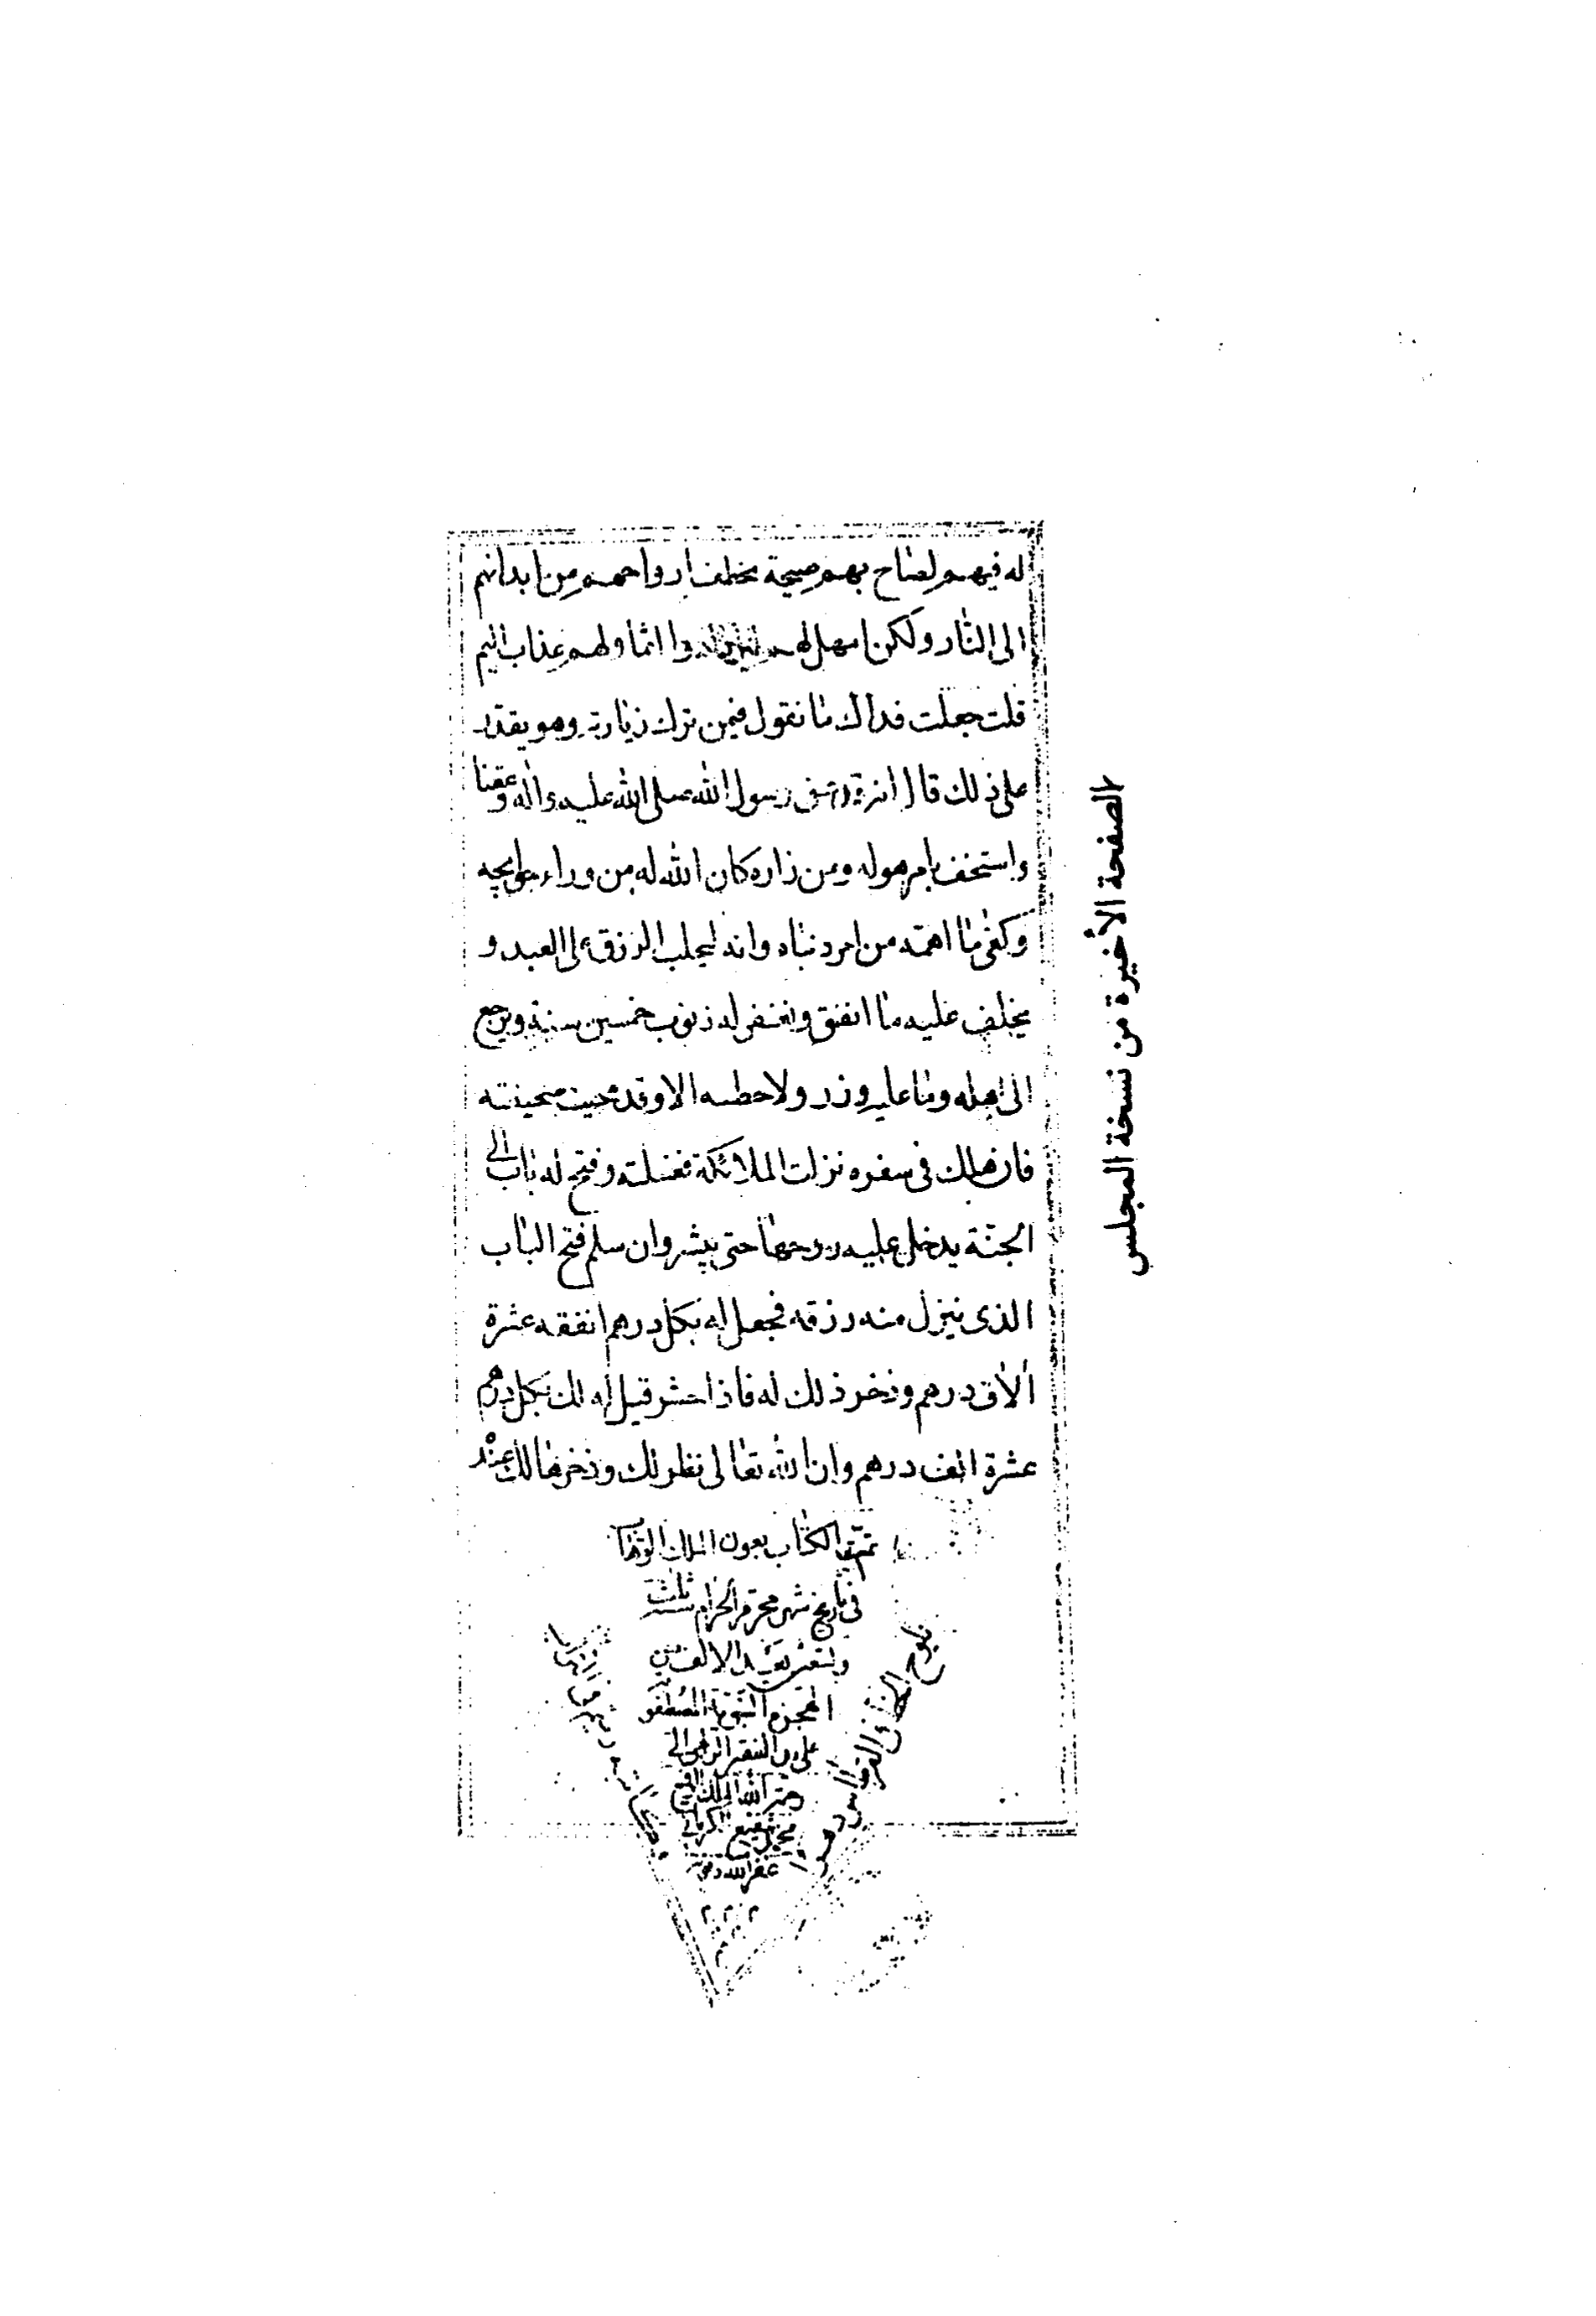 له فيهم لصاح بهم صيحة يخطف ارواحهم من ابدانهم
الى النار ولكن امهل لهم ليزدادوا اثما ولهم عذاب اليم
قلت جعلت فداك ما نقول فيمن ترك زيارته وهو يقدر
على ذلك قال انه قد عق رسول الله صلى الله عليه واله وعقنا
واستخف بامر هو له ومن زاره كان الله له من وراء حوايجه
وكفى ما اهمه من امر دنياه وانه ليجلب الرزق على العبد و
يخلف عليه ما انفق ويغفر له ذنوب خمسين سنة ويرجع
الى اهله وما عليه وزر ولا خطيئه الا وقد محيت من صحيفته
فان هلك في سفره نزلت الملائكة فغسلته وفتح له باب الى
الجنة يدخل عليه روحها حتى ينشر وان سلم فتح الباب
الذى ينزل منه رزقه فجعل له بكل درهم انفقه عشرة
الاف درهم وذخر ذلك له فاذا حشر قيل له لك بكل درهم
عشرة الف درهم وان الله تعالى نظر لك وذخرها لك عنده
تمت الكتاب بعون الملك الوهاب
فى تاريخ شهر محرم الحرام سنة ثلث
وتسعين بعد الالف من
الهجرة النبوية المصطفوية
على يد الفقير الراجى الى
رحمة الله الملك
محمد شفيع
عفى الله
يلوح الخط فى القرطاس دهرا
الصفحة الأخيرة من نسخة المجلس